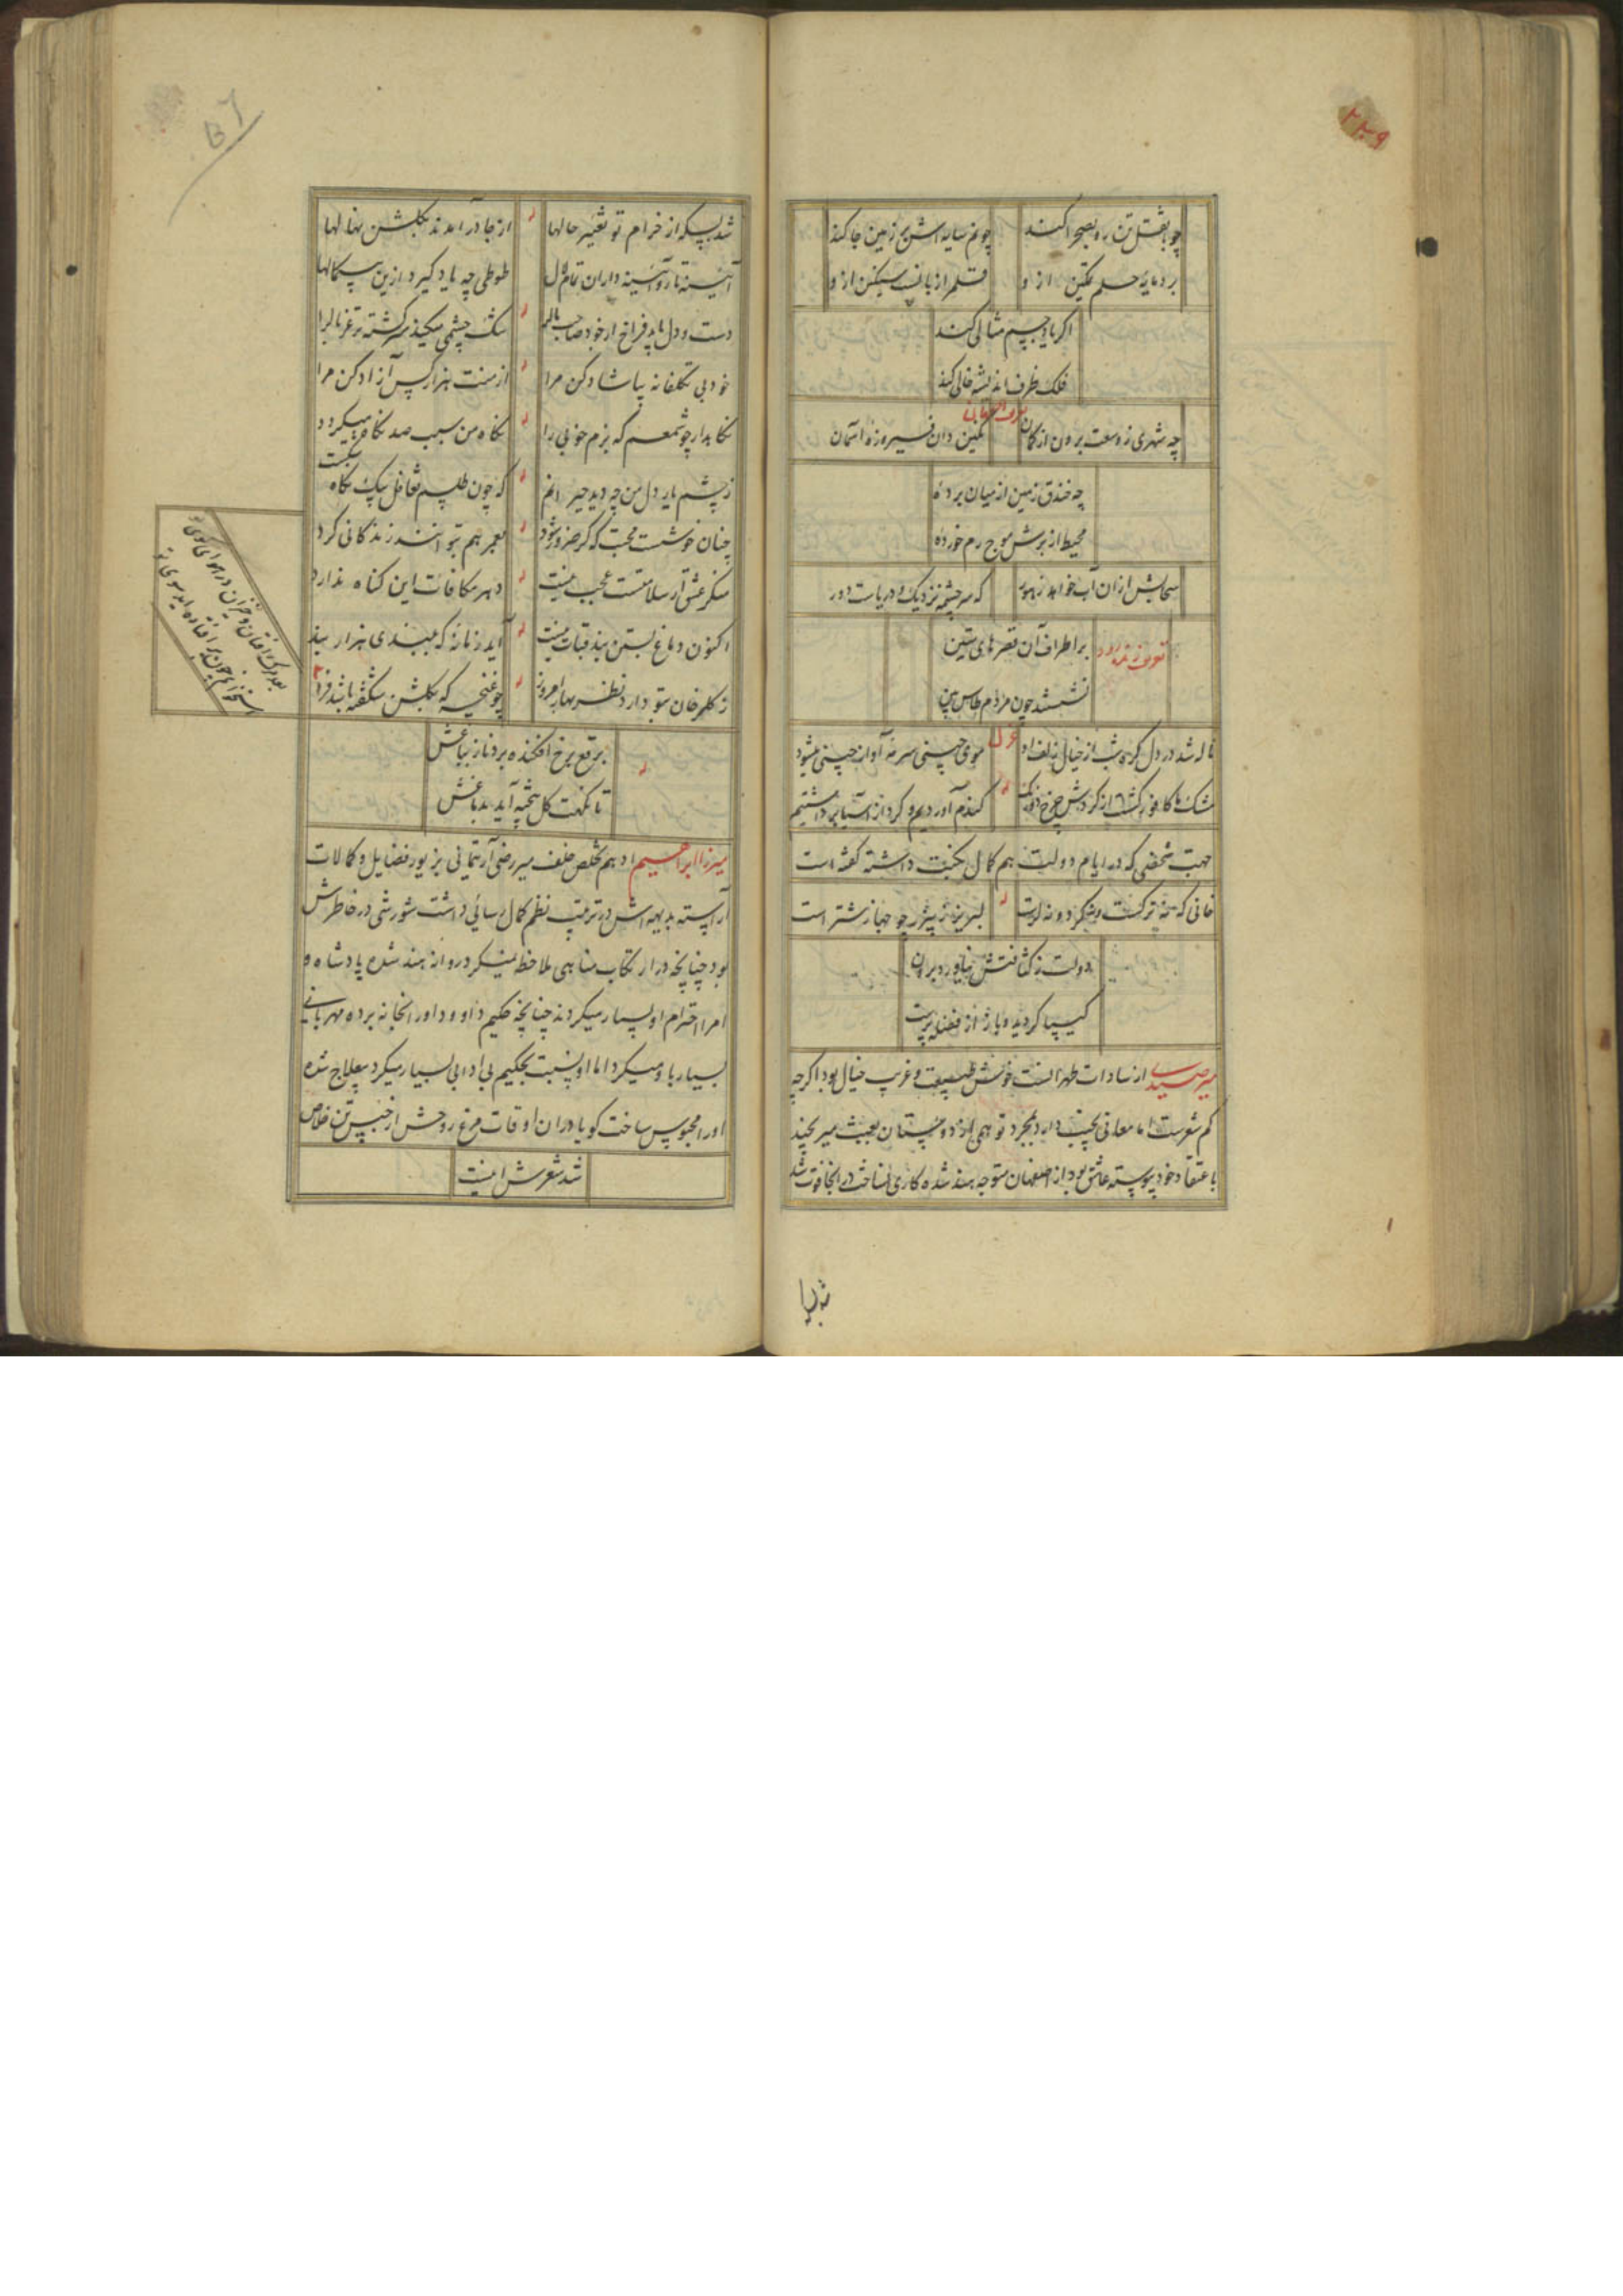 ۲۲۹
چو بقتل تن ره بصحرا کند
چو نم سایه اش بیخ زمین جا کند
بر دمایهٔ حلم تمکین ازو
قلم از بانست سیکن ازو
اگر یاد جسم مثالی کند
فلک ظرف اندیشه خالی کند
چه شهری ز وسعت برون از کمان
نکین دان فیروزه آسمان
چه خندق زمین از میان برده
محیط از برش موج رم خورده
سحابش ازان آب خواهد ز
که سرچشمه نزدیک و دریاست دور
تعریف زنده رود
بر اطراف آن قصرهای متین
نشستند چون مردم طاس بین
ناله شد در دل گره شب از خیال زلف او
موی چینی سرمه آواز چینی میشود
مشک ها کافور گشت از گردش چرخ دورنک
گندم آوردیم و گرد از آسیا برداشتیم
جهت شخصی که در ایام دولت هم کمال نکبت داشته گفته است
خانی که نه ترکست و نه کرد و نه لرست
لبریز ز پیزر چو جهاز شتر است
دولت ز کثافتش نیاورد برون
گردید و باز از فضله پرست
میر صیدی از سادات طهرانست خوش طبیعت و غریب خیال بود اگرچه
کم شعرست اما معانی عجیب دارد بمجرد توهمی از دوستان بعبث میرنجید
باعتقاد خود پیوسته عاشق بود از اصفهان متوجه هند شده کاری نساخت در انجا فوت شد
شد بسکه از خرام تو تغییر حالها
از جا درآمدند بکلشن نهالها
طوطی چه یاد گیرد ازین
دست و دل باید فراخ از خود صاحب مال را
سک چشمی میکند سرگشته تر غربال را
خود بی تکلفانه بیا شاد کن مرا
از منت هزار کس آزاد کن مرا
نگاه بدار چو شمعم که بزم خوبی را
نگاه من سبب صد نگاه میگردد
ز چشم یار دل من چه دید حیرانم
که چون طلسم تغافل بیک نگاه شکست
چنان خوشست محبت که گر ضرور شود
بعمر هم بتوانند زندگانی کرد
منکر عشق ار سلامتست عجب نیست
دهر مکافات این گناه ندارد
اکنون دماغ بستن بند قبات نیست
آید زمانه که ببندی هزار بند
ز گلرخان بتو دارد نظر بهار امروز
چو غنچه که بکلشن شکفته باشد فرد
بعد مرگ افتان و خیزان در هوای کوی تو
استخوانم چون پر افتاده آید سوی تو
برقع برخ افکنده برد ناز بباغش
تا نکهت گل بیخته آید بدماغش
میرزا ابراهیم ادهم تخلص خلف میر رضی آرتیمانی بزیور فضایل و کمالات
آراسته بدیهه اش در ترتیب نظم کمال رسائی داشت شورشی در خاطرش
بود چنانچه در ارتکاب مناهی ملاحظه نمیکرد روانه هند شده پادشاه و
امرا احترام او بسیار میکردند چنانچه حکیم داوود او را بخانه برده مهربانی
بسیار باو میکرد اما او نسبت بحکیم بی ادبی بسیار میکرد بعلاج شده
او را محبوس ساخت گویا در ان اوقات مرغ روحش از حبس تن خلاص
شد شعرش اینست